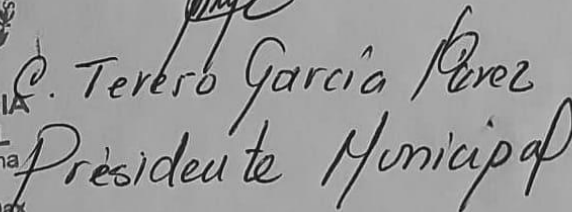 C. Terero García Pérez
Presidente Municipal